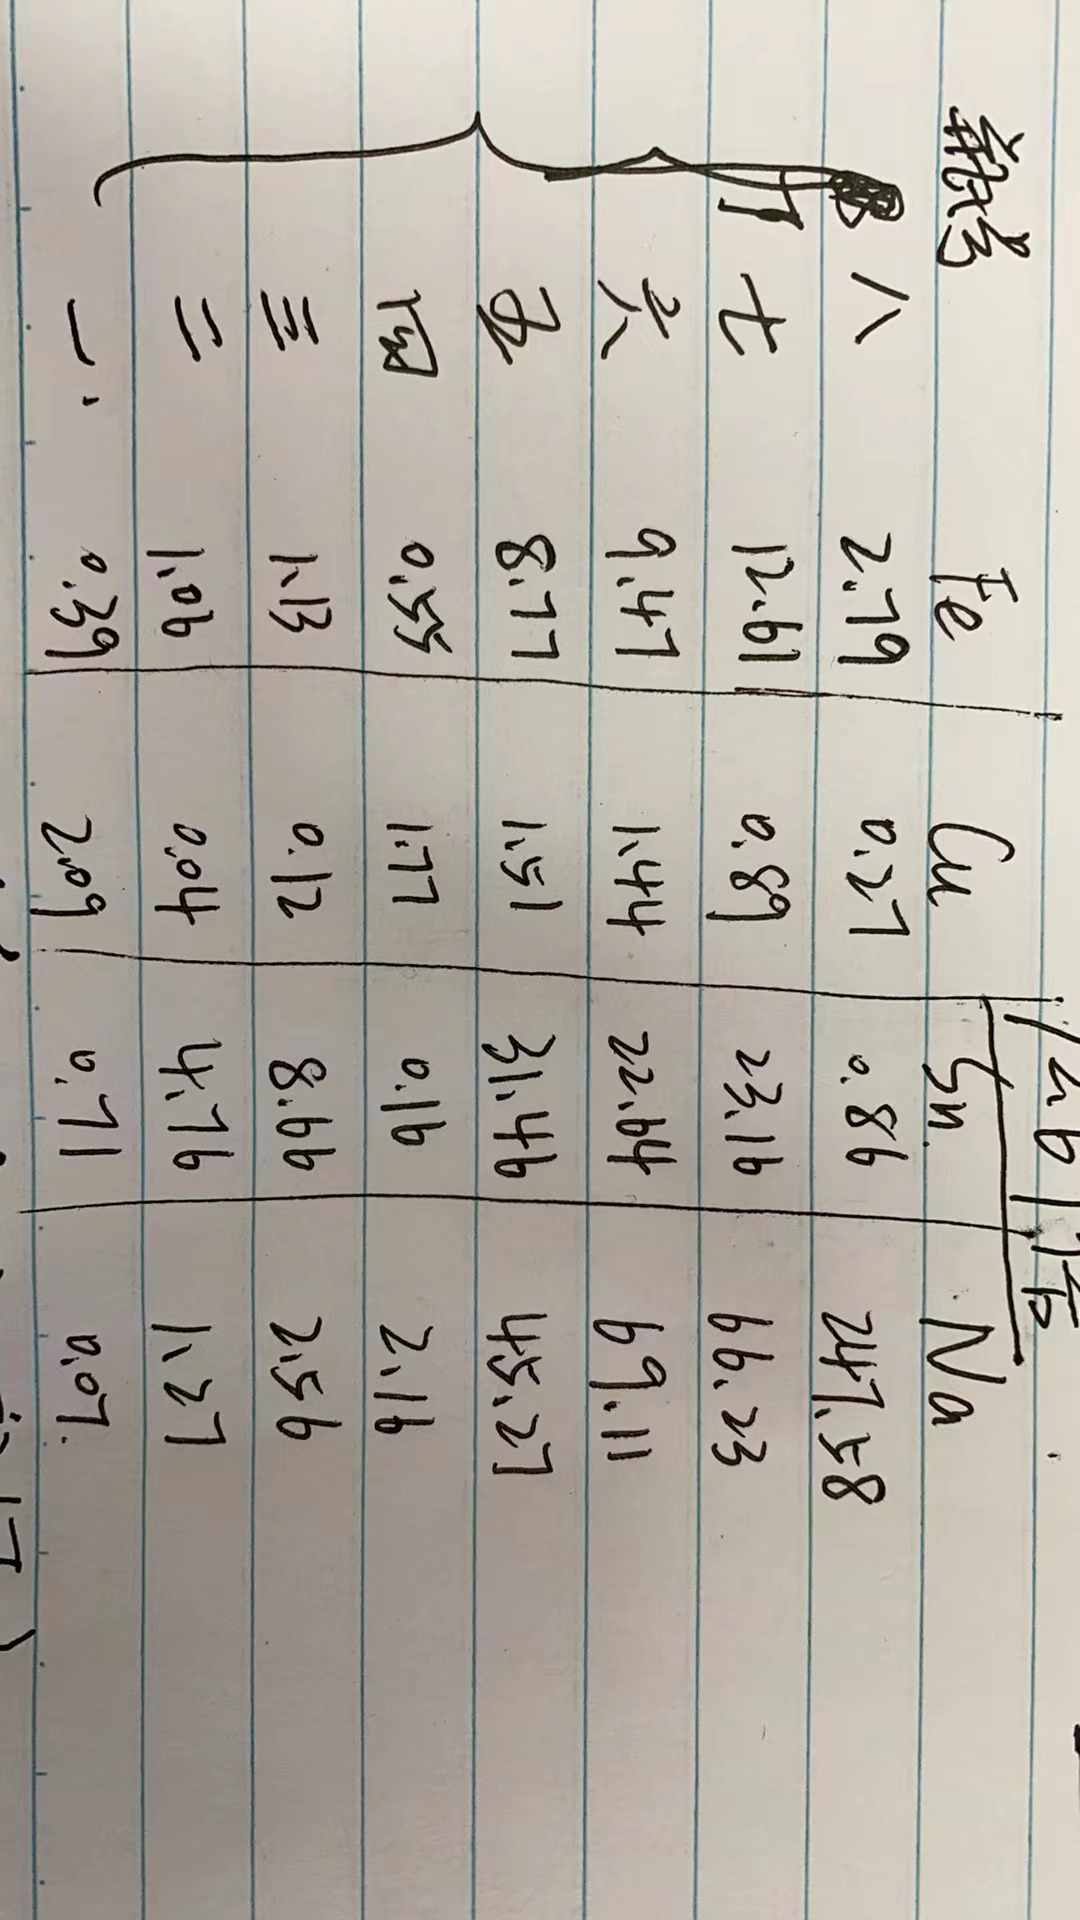 Fe Cu Sn Na
八 2.79 0.27 0.86 247.58
七 12.61 0.89 23.16 66.23
六 9.47 1.44 22.64 69.11
五 8.77 1.51 31.46 45.27
四 0.55 1.77 0.16 2.16
三 1.13 0.12 8.66 2.56
二 1.06 0.04 4.76 1.27
一 0.39 2.09 0.71 0.07